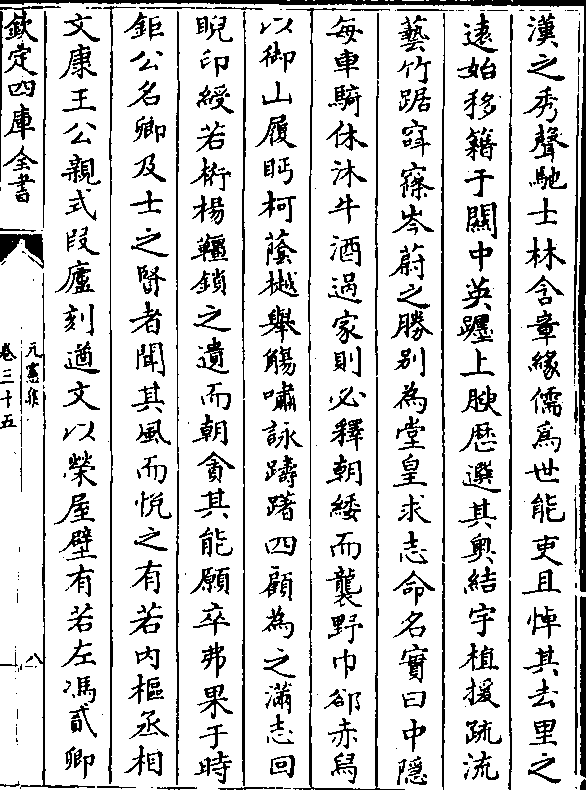 漢之秀聲馳士林含章緣儒為世能吏且悼其去里之
遠始移籍于關中英躔上腴歴選其奧結宇植援疏流
藝竹踞窙寥岑蔚之勝别為堂皇求志命名實曰中隱
每車騎休沐牛酒過家則必釋朝緌而襲野巾郤赤舄
以御山履眄柯蔭樾舉觴嘯詠躊躇四顧為之滿志回
睨印綬若桁楊韁鎖之遺而朝貪其能願卒弗果于時
鉅公名卿及士之賢者聞其風而悅之有若内樞丞相
文康王公親式段廬刻遒文以榮屋壁有若左馮貳卿
欽定四庫全書
元憲集
卷三十五
八